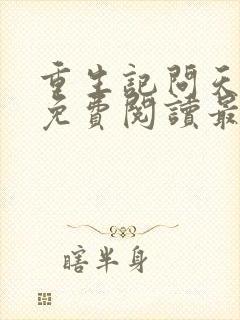 重生記問天
免費閱讀最
瞎半身